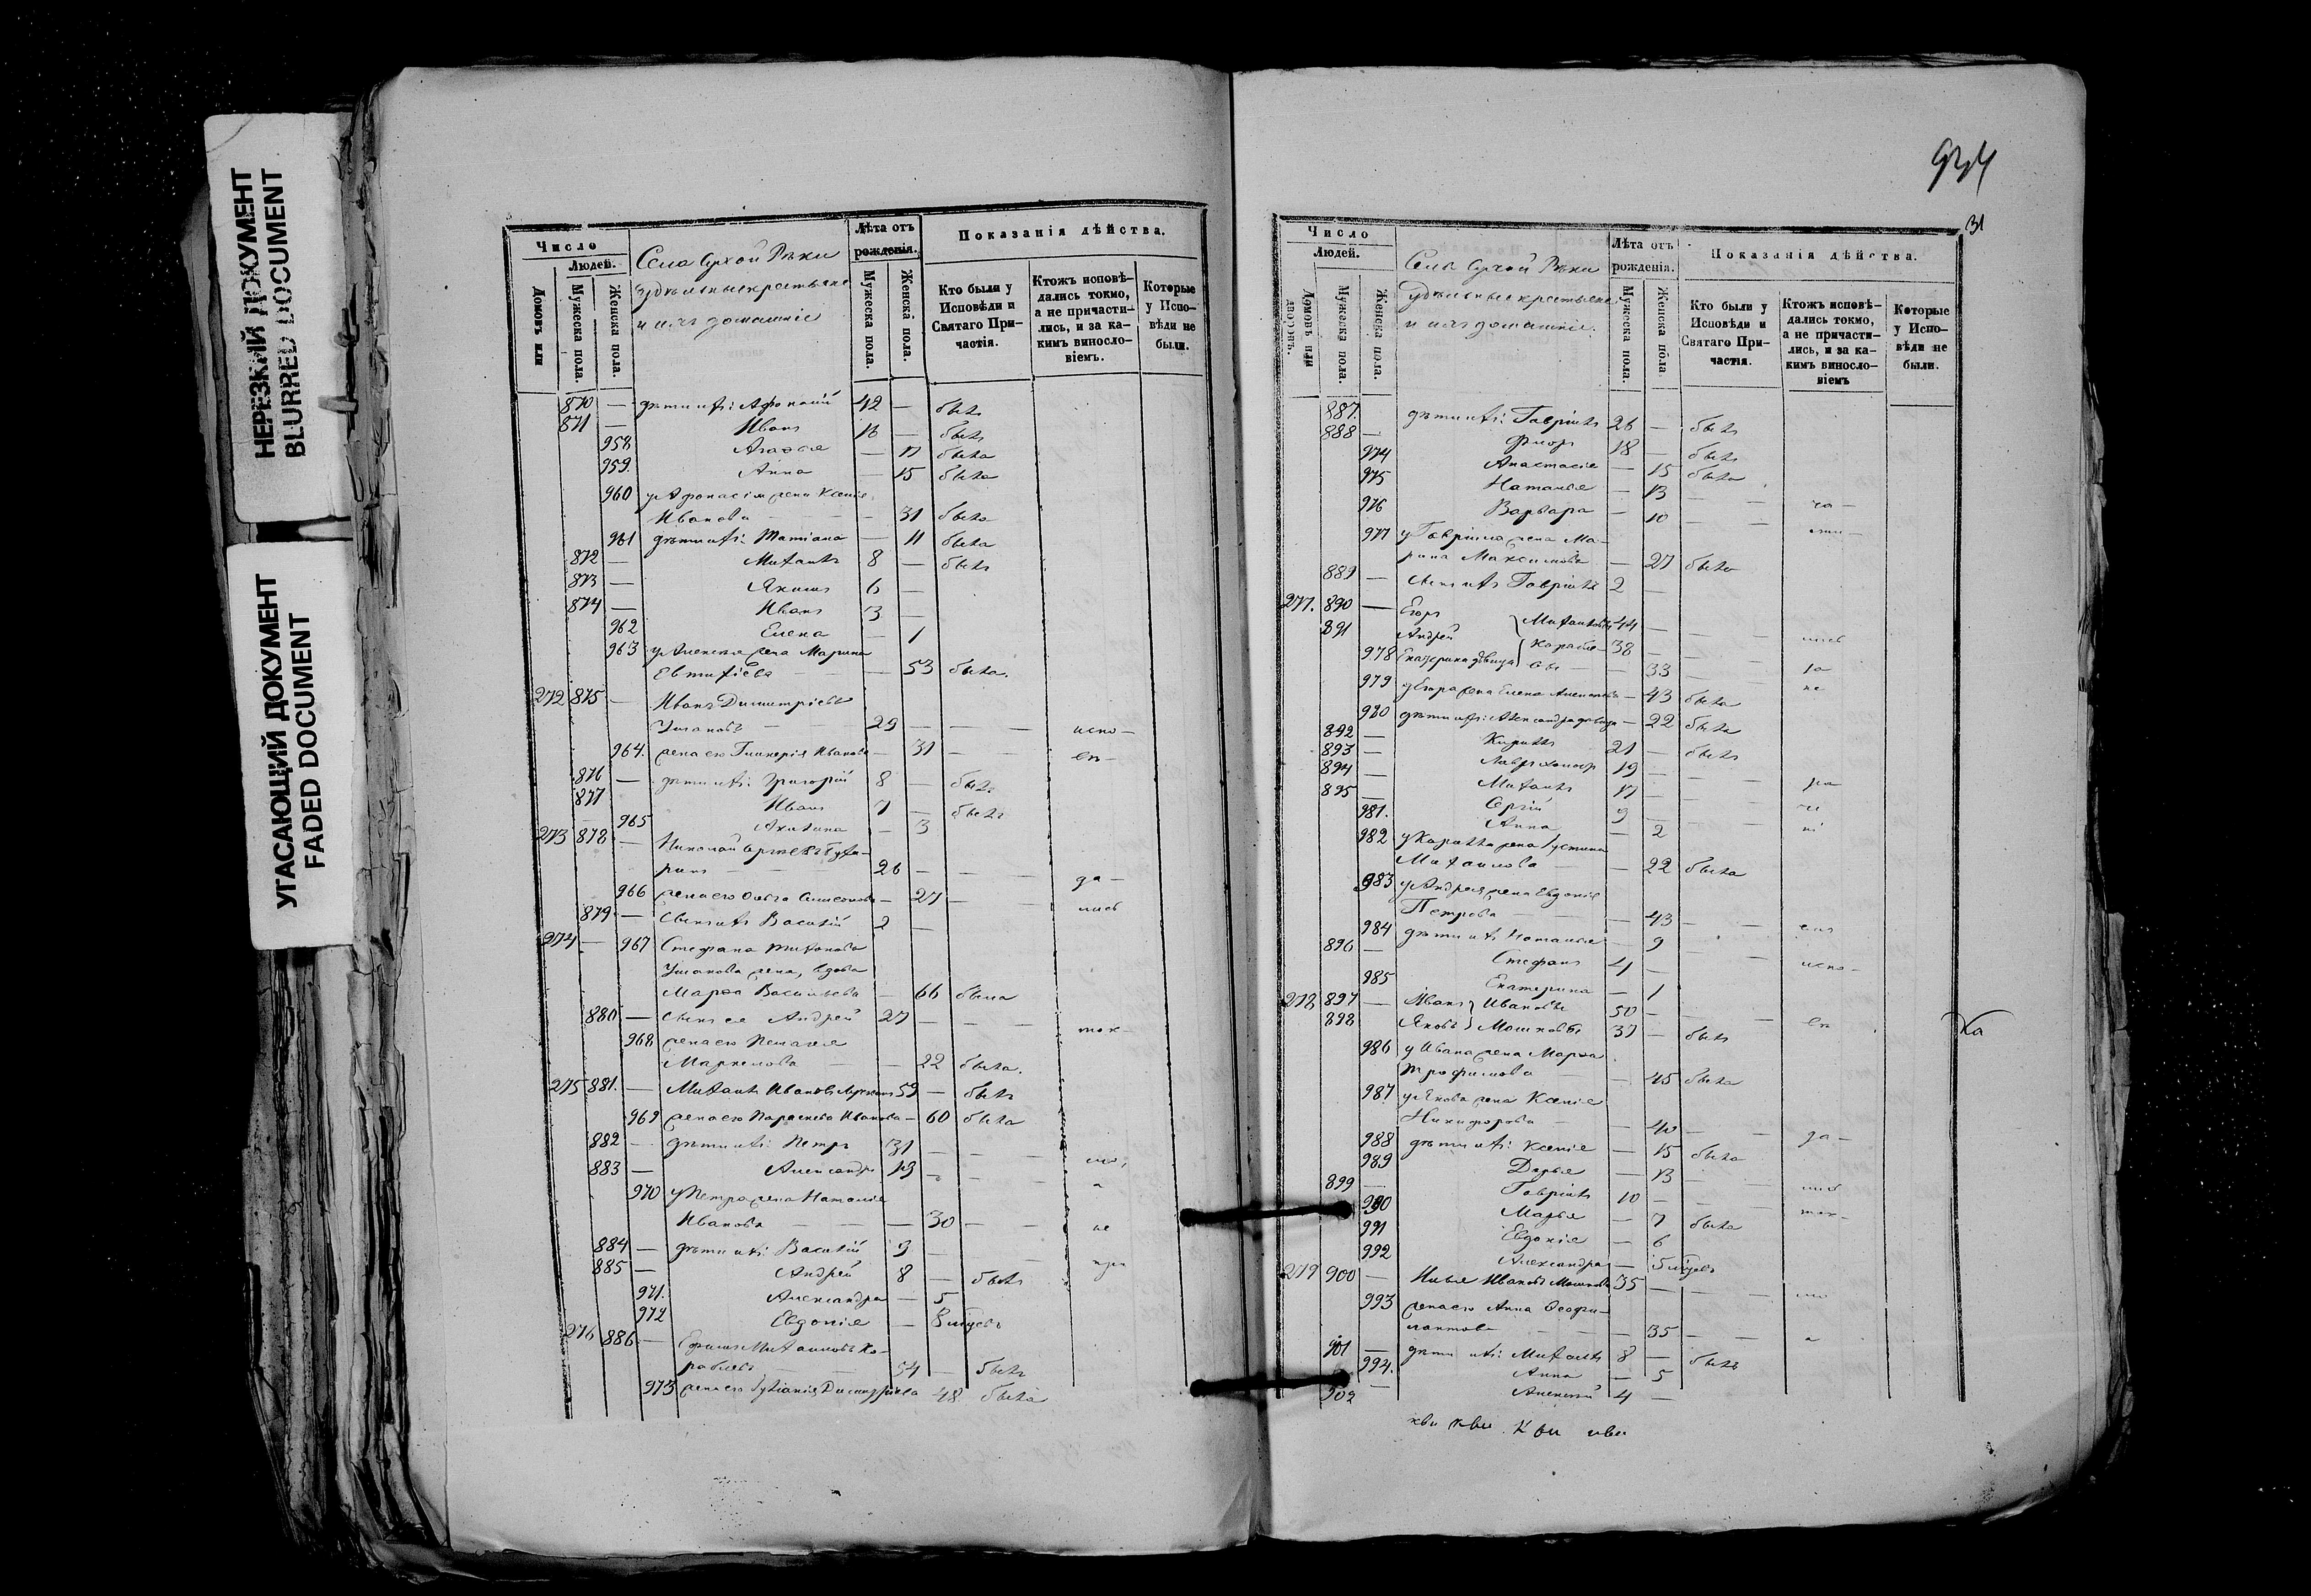 НЕРЕЗКИЙ ДОКУМЕНТ
BLURRED DOCUMENT
УГАСАЮЩИЙ ДОКУМЕНТ
FADED DOCUMENT
Число
Людей.
Домовъ или
Мужеска пола.
Женска пола.
Села Сухой Рѣки
удѣльные крестьяне
и ихъ домашніе
Лѣта отъ
рожденія.
Мужеска пола.
Женска пола.
Показанія дѣйства.
Кто были у
Исповѣди и
Святаго При-
частія.
Ктожъ исповѣ-
дались токмо,
а не причасти-
лись, и за ка-
кимъ винosло-
віемъ.
Которые
у Испо-
вѣди не
были.
870 — дѣти ихъ: Афонасій 42 — былъ
871 — Иванъ 18 — былъ
958 Агафья — 17 была
959. Анна — 15 была
960 у Афонасія жена Ксенія
Иванова — 31 была
961 дѣти ихъ: Татіана — 11 была
872 — Михаилъ 8 — былъ
873 — Якимъ 6 —
874 — Иванъ 3 —
962 Елена — 1
963 у Алексея жена Марина
Евтихіева — 53 была.
272 875 — Иванъ Димитріевъ
Ушаковъ — 29 — — — испо—
964. жена его Гликерія Иванова — 31 — — вѣ—
876 — дѣти ихъ: Григорій 8 — былъ
877 Иванъ 7 — былъ
965 Акилина — 3
273 878 — Николай
26 — — — да—
966 жена его Ольга — 27 — лись
879 — сынъ ихъ Василій 2 —
274 — 967 Стефана Тиханова
Ушакова жена, вдова
Марѳа Васильева — 66 была
880 — сынъ ея Андрей 27 — — — ток—
968 жена его Пелагея
Маркелова — 22 была.
275 881. — Михаилъ Ивановъ 59 — былъ
969 жена его Параскева Иванова — 60 была
882 — дѣти ихъ: Петръ 31 — — — мо,
883 — Александръ 13 — — — а
970 у Петра жена Наталія
Иванова — — 30 — — не
884 — дѣти ихъ: Василій 9 — — при
885 — Андрей 8 — былъ
971. Александра — 5
972 Евдокія — 8 мѣсяцъ
276 886 — Ефимъ Михаиловъ Ко-
раблевъ 54 — былъ
973 жена его Іуліанія Димитріева 48 была
934
31
Число
Людей.
Домовъ или
дворовъ.
Мужеска пола.
Женска пола.
Села Сухой Рѣки
Удѣльные крестьяне
и ихъ домашніе.
Лѣта отъ
рожденія.
Мужеска пола.
Женска пола.
Показанія дѣйства.
Кто были у
Исповѣди и
Святаго При-
частія.
Ктожъ исповѣ-
дались токмо,
а не причасти-
лись, и за ка-
кимъ винosло-
віемъ
Которые
у Испо-
вѣди не
были.
887. дѣти ихъ: Гавріилъ 26 — былъ
888 — Флоръ 18 — былъ
974 Анастасія — 15 была
975 Наталья — 13 — — ча—
976 Варвара — 10 — — сти—
977 у Гавріила жена Ма-
рина Максимова — 27 была
889 — сынъ ихъ Гавріилъ 2 —
277. 890 — Егоръ } Михаиловы 44 — — — лись
891 Андрей } Корабле- 38 — — —
978 Екатерина дѣвица } вы — 33 — — за
979 у Егора жена Елена Алексѣева — 43 была не
980 дѣти ихъ: Александра дѣвица — 22 была
892 — Кирилъ 21 — былъ
893 — Лавръ 19 — — — ра
894 — Михаилъ 17 — — — че
895 — Сергій 9 — — — ні
981. Анна — 2
982 у Кирилла жена Іустина
Михаилова — 22 была
983 у Андрея жена Евдокія
Петрова — 43 — — емъ
984 дѣти ихъ Наталья — 9
896 — Стефанъ 4 — испо—
985 Екатерина — 1
278 897 — Иванъ } Ивановы 50 — — — вѣ
898 Яковъ } Мошковы 37 — былъ
986 у Ивана жена Марѳа
Трофимова — 45 была
987 у Якова жена Ксенія
Никифорова — 40 — — да—
988 дѣти ихъ: Ксенія — 15 была
989 Дарья — 13 — лись
899 — Гавріилъ 10 — — ток—
990 Марья — 7 была
991 Евдокія — 6
992 Александра — 5 мѣсяцъ
279 900 — Илья Ивановъ Мошковъ 35 — — — мо
993 жена его Анна Ѳеофи-
лактова — 35 — — а
901 — дѣти ихъ: Михаилъ 8 — былъ
994. Анна — 5
902 — Алексей 4 —
Ка